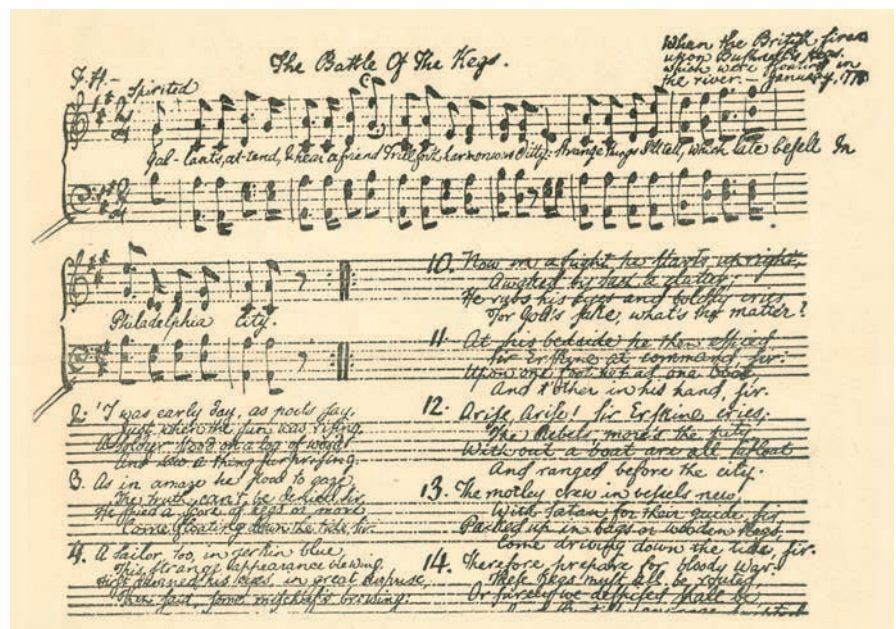 The Battle Of The Kegs.
When the British fires
upon Bushnell's Kegs.
which were floating in
the river. — January, 1778
F. H. —
Spirited
Gal-lants, at-tend, & hear a friend Trill forth harmonious ditty: Strange things I'll tell, which late befell In
Philadelphia City.
2. 'Twas early day, as poets say,
Just when the sun was rising,
A soldier stood on a log of wood
And saw a thing surprising.
3. As in amaze he stood to gaze,
The truth can't be denied, sir,
He spied a score of kegs or more
Come floating down the tide, sir.
4. A sailor, too, in jerkin blue,
This strange appearance viewing,
First damned his eyes, in great surprise,
Then said, some mischief's brewing:
10. Now in a fright he starts upright,
Awaked by such a clatter;
He rubs his eyes and boldly cries,
For God's sake, what's the matter?
11. At his bedside he then espied
Sir Erskine at command, sir:
Upon one foot he had one boot
And t'other in his hand, sir.
12. Arise, Arise! Sir Erskine cries;
The Rebels, more's the pity
With out a boat are all afloat
And ranged before the city.
13. The motley crew in vessels new,
With Satan for their guide, sir
Packed up in bags or wooden kegs,
Come driving down the tide, sir.
14. Therefore prepare for bloody war.
These Kegs must all be routed,
Or surely we despised shall be